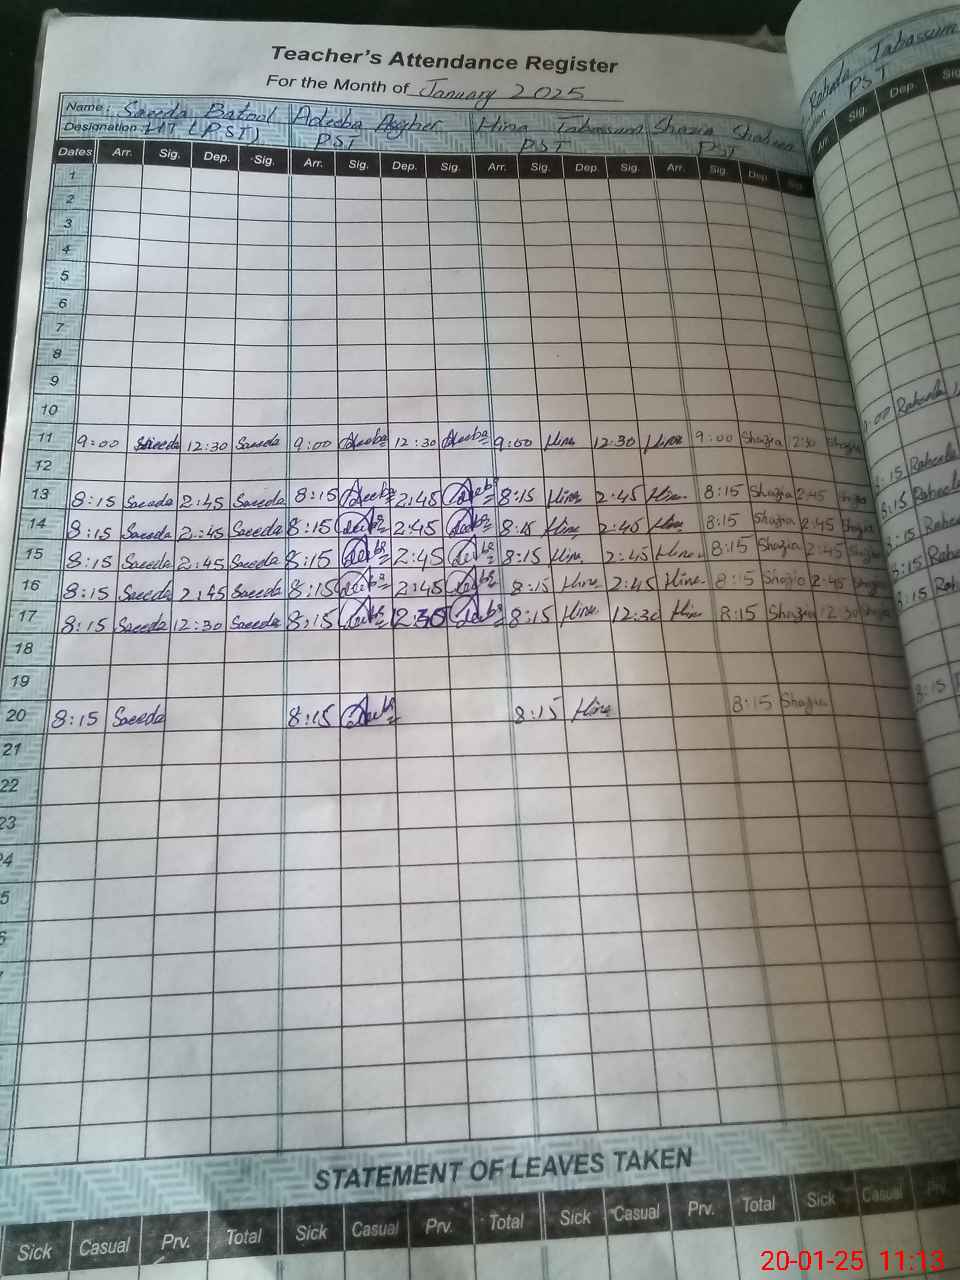 Teacher's Attendance Register
For the Month of January 2025
Name: Saeeda Batool Adeeba Asgher Hina Tabassum Shazia Shaheen Raheela Tabassum
Designation HT (PST) PST PST PST PST
Dates Arr. Sig. Dep. Sig. Arr. Sig. Dep. Sig. Arr. Sig. Dep. Sig. Arr. Sig. Dep. Sig. Arr. Sig. Dep. Sig.
1
2
3
4
5
6
7
8
9
10
11 9:00 Saeeda 12:30 Saeeda 9:00 Adeeba 12:30 Adeeba 9:00 Hina 12:30 Hina 9:00 Shazia 12:30 Shazia 9:00 Raheela
12
13 8:15 Saeeda 2:45 Saeeda 8:15 Adeeba 2:45 Adeeba 8:15 Hina 2:45 Hina 8:15 Shazia 2:45 Shazia 8:15 Raheela
14 8:15 Saeeda 2:45 Saeeda 8:15 Adeeba 2:45 Adeeba 8:15 Hina 2:45 Hina 8:15 Shazia 2:45 Shazia 8:15 Raheela
15 8:15 Saeeda 2:45 Saeeda 8:15 Adeeba 2:45 Adeeba 8:15 Hina 2:45 Hina 8:15 Shazia 2:45 Shazia 8:15 Raheela
16 8:15 Saeeda 2:45 Saeeda 8:15 Adeeba 2:45 Adeeba 8:15 Hina 2:45 Hina 8:15 Shazia 2:45 Shazia 8:15
17 8:15 Saeeda 12:30 Saeeda 8:15 Adeeba 12:30 Adeeba 8:15 Hina 12:30 Hina 8:15 Shazia 12:30 Shazia 8:15
18
19
20 8:15 Saeeda 8:15 Adeeba 8:15 Hina 8:15 Shazia 8:15
21
22
23
24
5
6
7
STATEMENT OF LEAVES TAKEN
Sick Casual Prv. Total Sick Casual Prv. Total Sick Casual Prv. Total Sick Casual
20-01-25 11:13